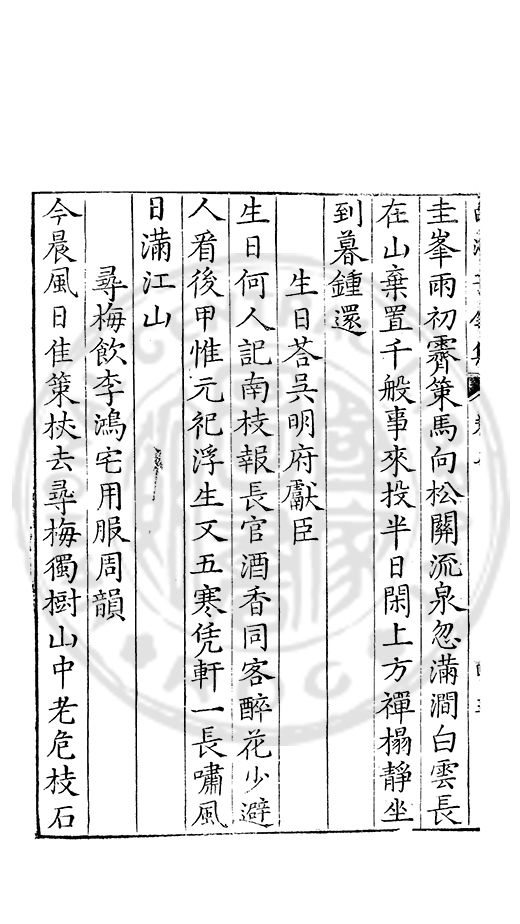 圭峯雨初霽策馬向松關流泉忽滿澗白雲長
在山棄置千般事來投半日閑上方禪榻靜坐
到暮鍾還
生日荅吳明府獻臣
生日何人記南枝報長官酒香同客醉花少避
人看後甲惟元祀浮生又五寒凭軒一長嘯風
日滿江山
尋梅飲李鴻宅用服周韻
今晨風日佳策杖去尋梅獨樹山中老危枝石